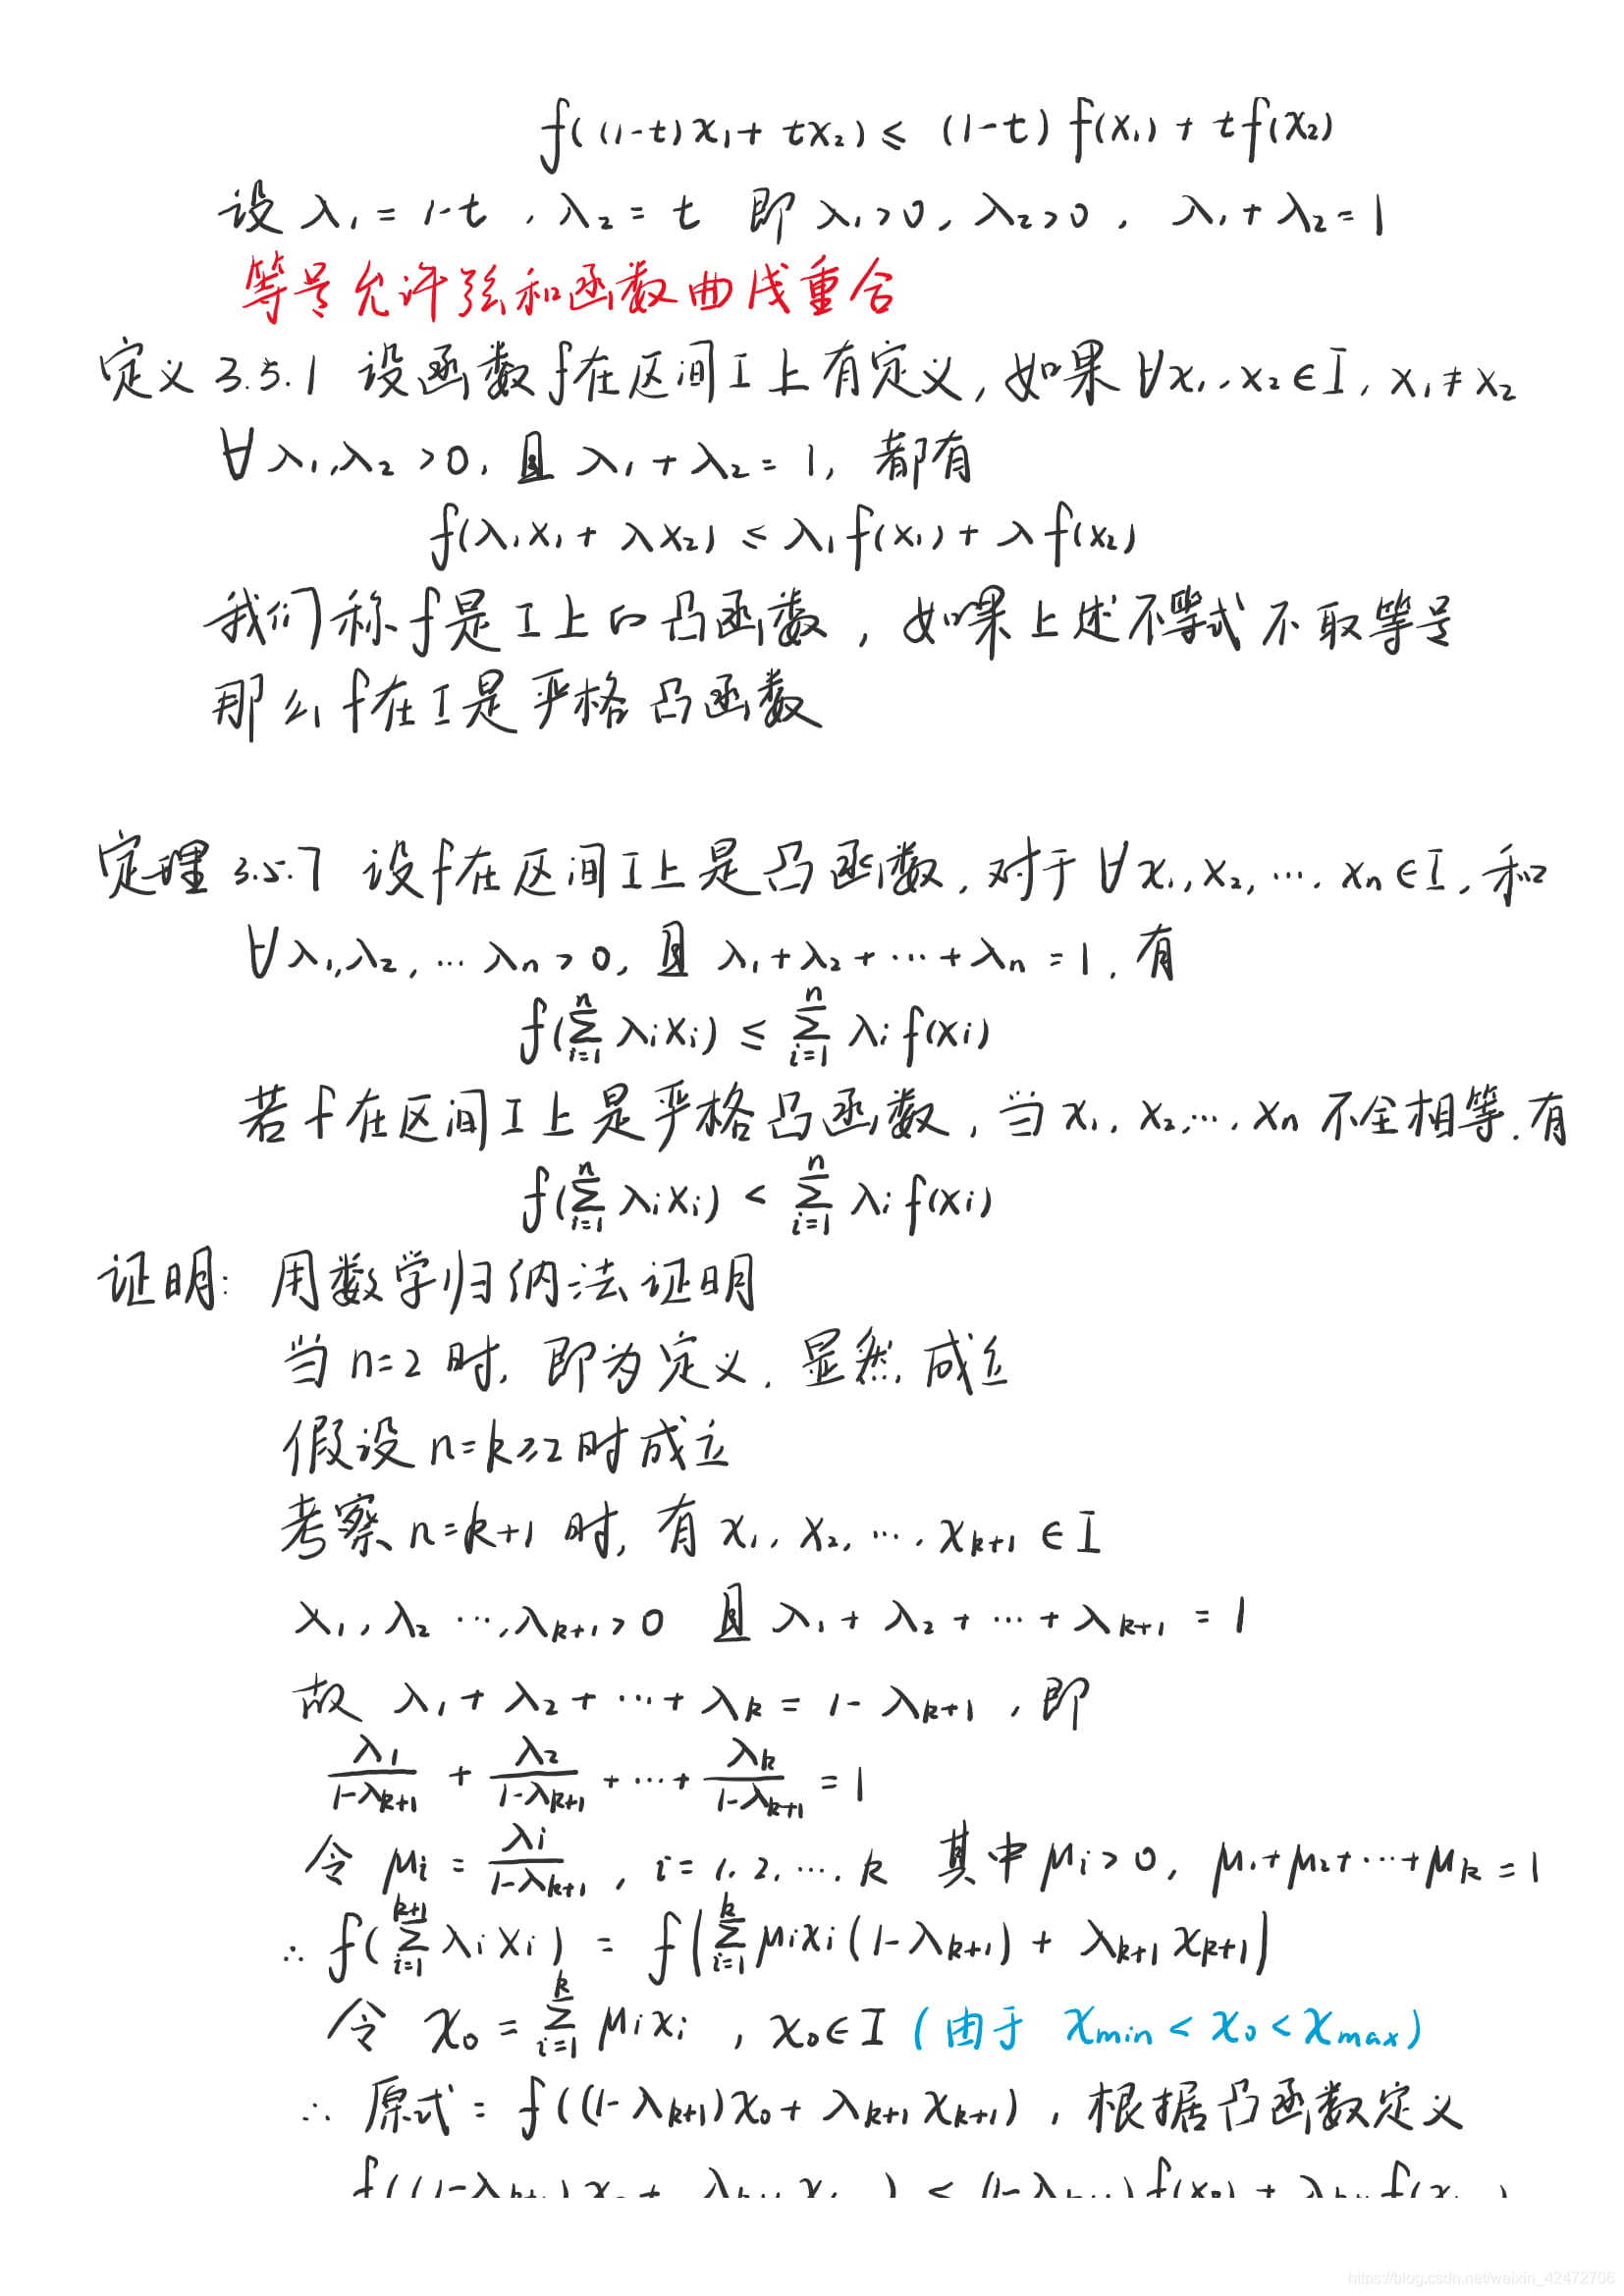 f((1-t)x₁+tx₂)≤(1-t)f(x₁)+tf(x₂)
设 λ₁=1-t,λ₂=t 即 λ₁>0,λ₂>0,λ₁+λ₂=1
等号允许弦和函数曲线重合
定义3.5.1 设函数f在区间I上有定义,如果∀x₁,x₂∈I,x₁≠x₂
∀λ₁,λ₂>0,且λ₁+λ₂=1,都有
f(λ₁x₁+λx₂)≤λ₁f(x₁)+λf(x₂)
我们称f是I上的凸函数,如果上述不等式不取等号
那么f在I是严格凸函数
定理3.5.7 设f在区间I上是凸函数,对于∀x₁,x₂,…,xₙ∈I,和
∀λ₁,λ₂,…λₙ>0,且λ₁+λ₂+…+λₙ=1,有
f(∑ⁿᵢ₌₁ λᵢxᵢ)≤∑ⁿᵢ₌₁ λᵢf(xᵢ)
若f在区间I上是严格凸函数,当x₁,x₂,…,xₙ不全相等,有
f(∑ⁿᵢ₌₁ λᵢxᵢ)<∑ⁿᵢ₌₁ λᵢf(xᵢ)
证明: 用数学归纳法证明
当n=2时,即为定义,显然成立
假设n=k≥2时成立
考察n=k+1时,有x₁,x₂,…,xₖ₊₁∈I
λ₁,λ₂…,λₖ₊₁>0 且λ₁+λ₂+…+λₖ₊₁=1
故 λ₁+λ₂+…+λₖ=1-λₖ₊₁,即
λ₁/(1-λₖ₊₁)+λ₂/(1-λₖ₊₁)+…+λₖ/(1-λₖ₊₁)=1
令 μᵢ=λᵢ/(1-λₖ₊₁),i=1,2,…,k 其中μᵢ>0,μ₁+μ₂+…+μₖ=1
∴ f(∑ᵏ⁺¹ᵢ₌₁ λᵢxᵢ)=f(∑ᵏᵢ₌₁ μᵢxᵢ(1-λₖ₊₁)+λₖ₊₁xₖ₊₁)
令 x₀=∑ᵏᵢ₌₁ μᵢxᵢ,x₀∈I(由于 xmin<x₀<xmax)
∴ 原式=f((1-λₖ₊₁)x₀+λₖ₊₁xₖ₊₁),根据凸函数定义
f((1-λₖ₊₁)x₀+λₖ₊₁xₖ₊₁)≤(1-λₖ₊₁)f(x₀)+λₖ₊₁f(xₖ₊₁)
https://blog.csdn.net/weixin_42472706